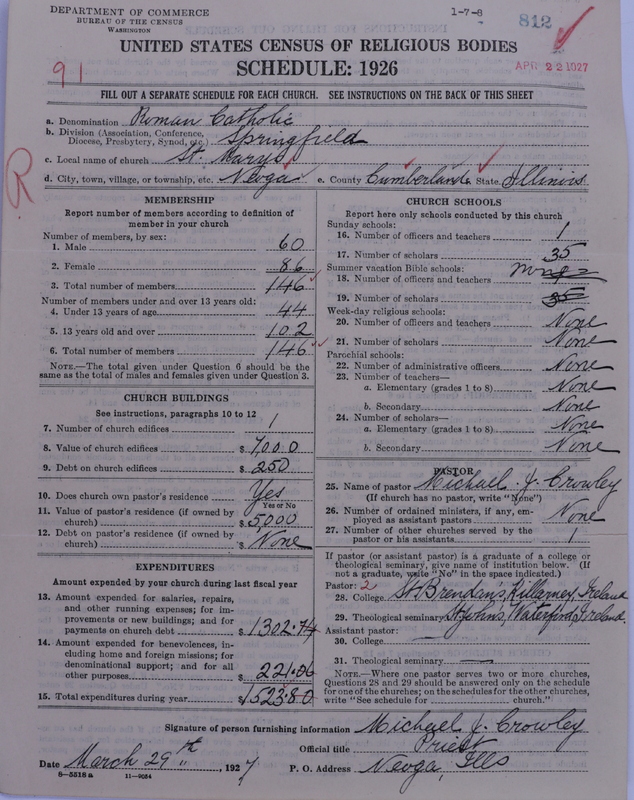 DEPARTMENT OF COMMERCE
BUREAU OF THE CENSUS
WASHINGTON
1-7-8
812
UNITED STATES CENSUS OF RELIGIOUS BODIES
SCHEDULE: 1926
91
APR 22 1927
FILL OUT A SEPARATE SCHEDULE FOR EACH CHURCH. SEE INSTRUCTIONS ON THE BACK OF THIS SHEET
a. Denomination Roman Catholic
b. Division (Association, Conference, Diocese, Presbytery, Synod, etc.) Springfield
c. Local name of church St. Marys
d. City, town, village, or township, etc. Neoga e. County Cumberland State Illinois
R
MEMBERSHIP
Report number of members according to definition of member in your church
Number of members, by sex:
1. Male 60
2. Female 86
3. Total number of members 146
Number of members under and over 13 years old:
4. Under 13 years of age 44
5. 13 years old and over 102
6. Total number of members 146
NOTE.—The total given under Question 6 should be the same as the total of males and females given under Question 3.
CHURCH BUILDINGS
See instructions, paragraphs 10 to 12
7. Number of church edifices 1
8. Value of church edifices $ 7000
9. Debt on church edifices $ 250
10. Does church own pastor's residence Yes
Yes or No
11. Value of pastor's residence (if owned by church) $ 5000
12. Debt on pastor's residence (if owned by church) $ None
EXPENDITURES
Amount expended by your church during last fiscal year
13. Amount expended for salaries, repairs, and other running expenses; for improvements or new buildings; and for payments on church debt $ 1302.74
14. Amount expended for benevolences, including home and foreign missions; for denominational support; and for all other purposes $ 221.06
15. Total expenditures during year $ 1523.80
CHURCH SCHOOLS
Report here only schools conducted by this church
Sunday schools:
16. Number of officers and teachers 1
17. Number of scholars 35
Summer vacation Bible schools:
18. Number of officers and teachers
19. Number of scholars 35
Week-day religious schools:
20. Number of officers and teachers None
21. Number of scholars None
Parochial schools:
22. Number of administrative officers None
23. Number of teachers—
a. Elementary (grades 1 to 8) None
b. Secondary None
24. Number of scholars—
a. Elementary (grades 1 to 8) None
b. Secondary None
PASTOR
25. Name of pastor Michael J. Crowley
(If church has no pastor, write "None")
26. Number of ordained ministers, if any, employed as assistant pastors None
27. Number of other churches served by the pastor or his assistants 1
If pastor (or assistant pastor) is a graduate of a college or theological seminary, give name of institution below. (If not a graduate, write "No" in the space indicated.)
Pastor: 2
28. College St. Brendan's, Killarney, Ireland
29. Theological seminary St John's, Waterford, Ireland.
Assistant pastor:
30. College
31. Theological seminary
NOTE.—Where one pastor serves two or more churches, Questions 28 and 29 should be answered only on the schedule for one of the churches; on the schedules for the other churches, write "See schedule for church."
Signature of person furnishing information Michael J. Crowley
Official title Priest
Date March 29th, 1927 P. O. Address Neoga, Ills
8—5518 a 11—9034